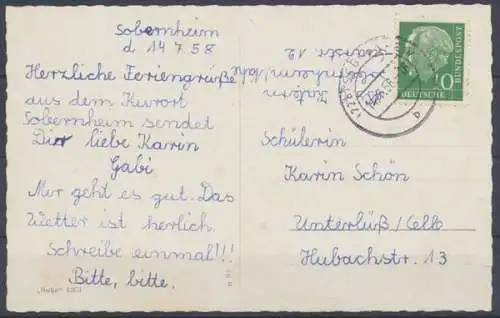 Sobernheim
d 14 7.58
Herzliche Feriengrüße
aus dem Kurort
Sobernheim sendet
Dir liebe Karin
Gabi
Mir geht es gut. Das
Wetter ist herlich.
Schreibe einmal!!!
Bitte, bitte.
DEUTSCHE BUNDESPOST
10
b
Schülerin
Karin Schön
Unterlüß/Celle
Hubachstr. 13